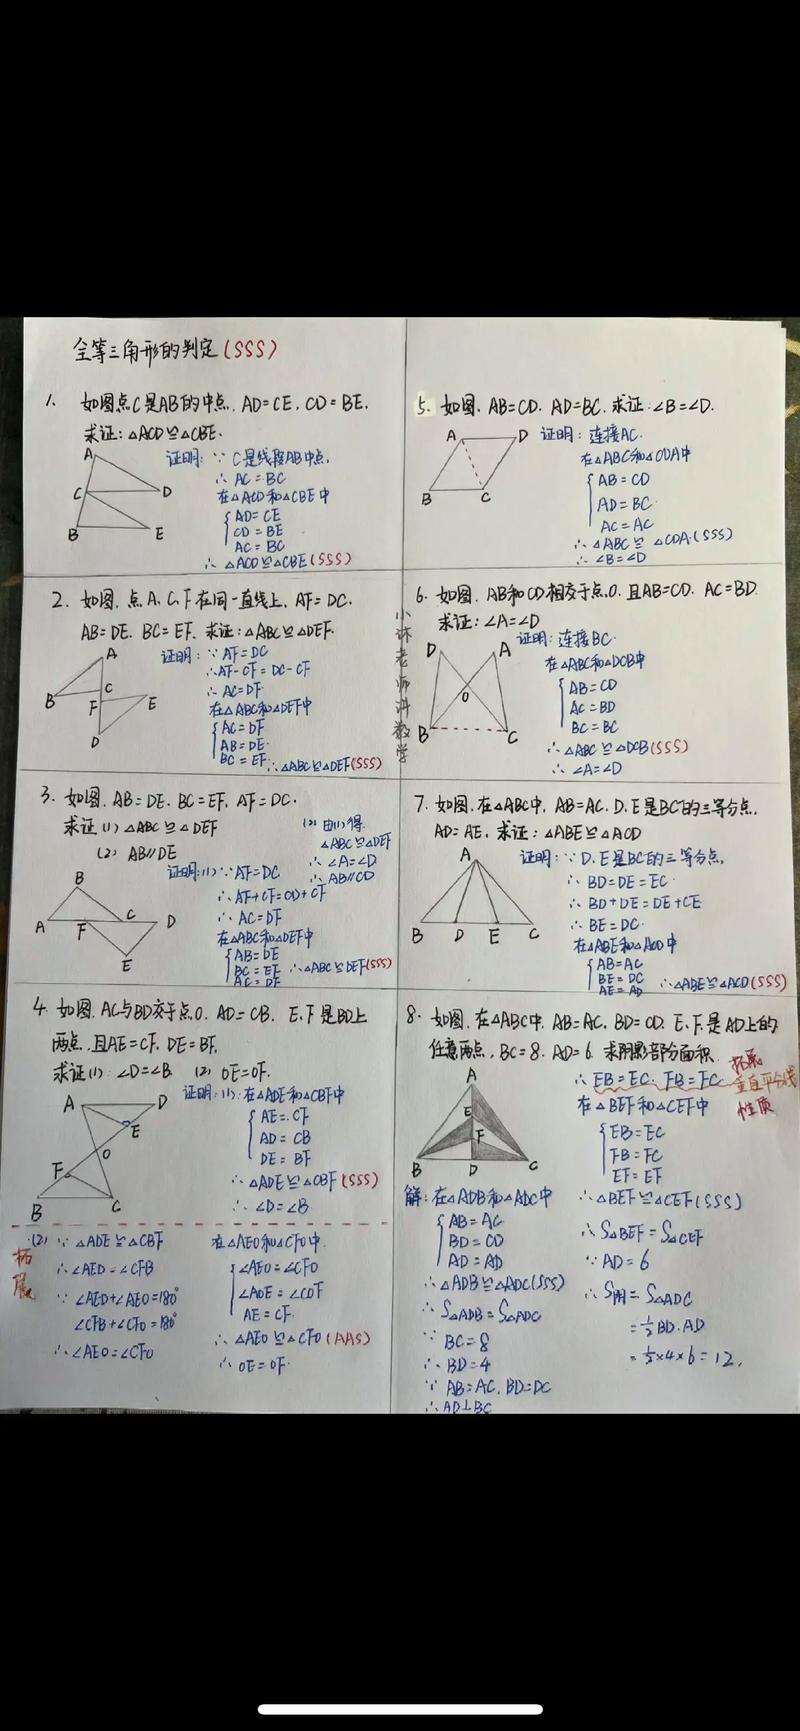 全等三角形的判定(SSS)
1. 如图点C是AB的中点. AD=CE, CD=BE.
求证: △ACD≌△CBE.
A
C
D
B
E
证明: ∵ C是线段AB中点.
∴ AC=BC
在△ACD和△CBE中
AD=CE
CD=BE
AC=BC
∴ △ACD≌△CBE(SSS)
2. 如图. 点A、C、F在同一直线上, AF=DC.
AB=DE. BC=EF. 求证: △ABC≌△DEF.
A
B
C
F
E
D
证明: ∵ AF=DC
∴AF-CF=DC-CF
∴ AC=DF
在△ABC和△DEF中
AC=DF
AB=DE
BC=EF ∴△ABC≌△DEF(SSS)
3. 如图. AB=DE. BC=EF. AF=DC.
求证(1) △ABC≌△DEF
(2) AB∥DE
B
A
F
C
D
E
证明:(1)∵ AF=DC
∴ AF+CF=CD+CF
∴ AC=DF
在△ABC和△DEF中
AB=DE
BC=EF ∴△ABC≌DEF(SSS)
AC=DF
(2) 由(1)得.
△ABC≌△DEF
∴ ∠A=∠D
∴ AB∥CD
4. 如图. AC与BD交于点O. AD=CB. E、F是BD上
两点. 且AE=CF. DE=BF.
求证(1): ∠D=∠B (2) OE=OF.
A
D
E
O
F
B
C
证明:(1): 在△ADE和△CBF中
AE=CF
AD=CB
DE=BF
∴ △ADE≌△CBF(SSS)
∴ ∠D=∠B
拓展
(2) ∵ △ADE≌△CBF
∴ ∠AED=∠CFB
∵ ∠AED+∠AEO=180°
∠CFB+∠CFO=180°
∴ ∠AEO=∠CFO
在△AEO和△CFO中.
∠AEO=∠CFO
∠AOE=∠COF
AE=CF.
∴ △AEO≌△CFO(AAS)
∴ OE=OF.
小沐老师讲数学
5. 如图. AB=CD. AD=BC. 求证: ∠B=∠D.
A
D
B
C
证明: 连接AC.
在△ABC和△CDA中
AB=CD
AD=BC
AC=AC
∴ △ABC≌△CDA.(SSS)
∴ ∠B=∠D
6. 如图. AB和CD相交于点O. 且AB=CD. AC=BD.
求证: ∠A=∠D
D
A
O
B
C
证明: 连接BC.
在△ABC和△DCB中
AB=CD
AC=BD
BC=BC
∴ △ABC≌△DCB(SSS)
∴ ∠A=∠D
7. 如图. 在△ABC中. AB=AC. D、E是BC的三等分点.
AD=AE. 求证: △ABE≌△ACD
A
B
D
E
C
证明: ∵ D、E是BC的三等分点.
∴ BD=DE=EC
∴ BD+DE=DE+CE
∴ BE=DC.
在△ABE和△ACD中
AB=AC
BE=DC ∴△ABE≌△ACD(SSS)
AE=AD
8. 如图. 在△ABC中. AB=AC. BD=CD. E、F.是AD上的
任意两点. BC=8. AD=6. 求阴影部分面积.
A
E
F
B
D
C
解: 在△ADB和△ADC中
AB=AC
BD=CD
AD=AD
∴ △ADB≌△ADC(SSS)
∴ S△ADB=S△ADC
∵ BC=8
∴ BD=4
∵ AB=AC. BD=DC
∴ AD⊥BC
∴ EB=EC. FB=FC
拓展
垂直平分线
性质
在△BEF和△CEF中
EB=EC
FB=FC
EF=EF
∴ △BEF≌△CEF(SSS)
∴ S△BEF=S△CEF
∵ AD=6
∴ S阴=S△ADC
=½BD·AD
=½×4×6=12.